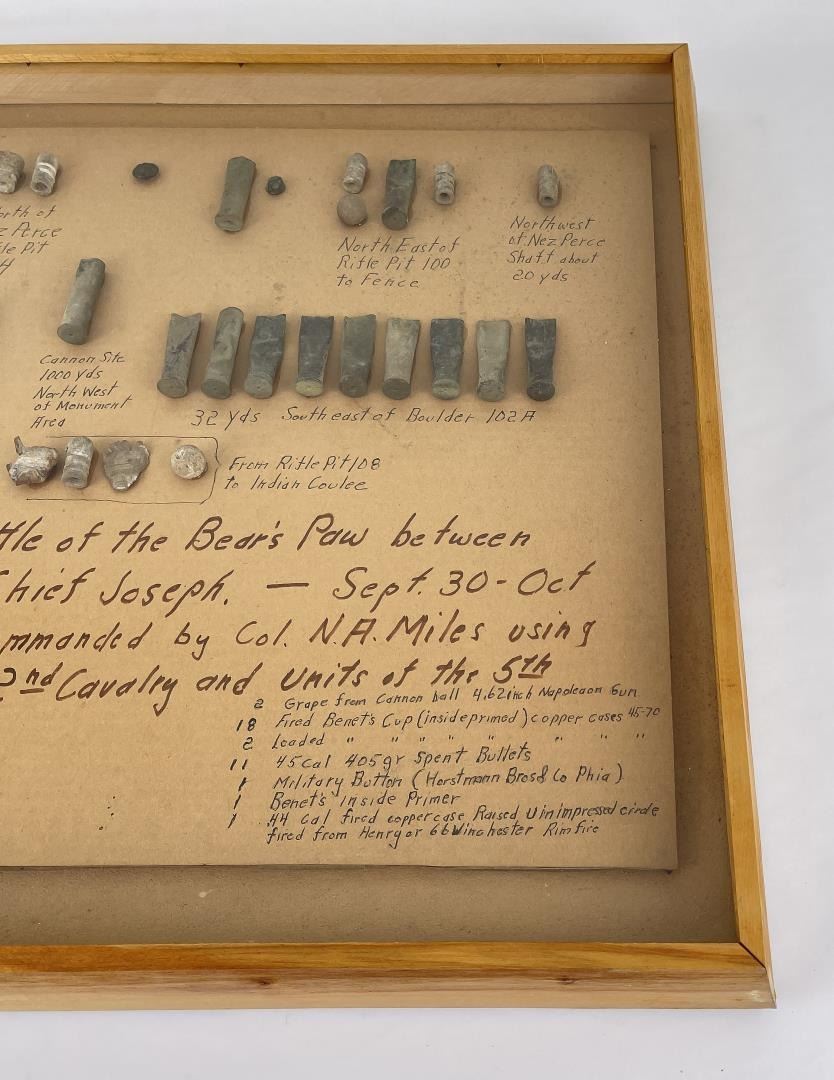 orth of
z Perce
le Pit
H
North East of
Rifle Pit 100
to Fence
Northwest
of Nez Perce
Shaft about
20 yds
Cannon Site
1000 yds
North West
of Monument
Area
32 yds Southeast of Boulder 102A
From Rifle Pit 108
to Indian Coulee
tle of the Bear's Paw between
hief Joseph. — Sept. 30 - Oct
mmanded by Col. N.A. Miles using
2nd Cavalry and units of the 5th
2 Grape from Cannon ball 4.62 inch Napoleon Gun
18 Fired Benet's Cup (inside primed) copper cases 45-70
2 Loaded " " " " " " " "
11 45 cal 405 gr Spent Bullets
1 Military Button (Horstmann Bros & Co Phia)
1 Benet's inside Primer
1 .44 Cal fired copper case Raised U in impressed circle
fired from Henry or 66 Winchester Rimfire